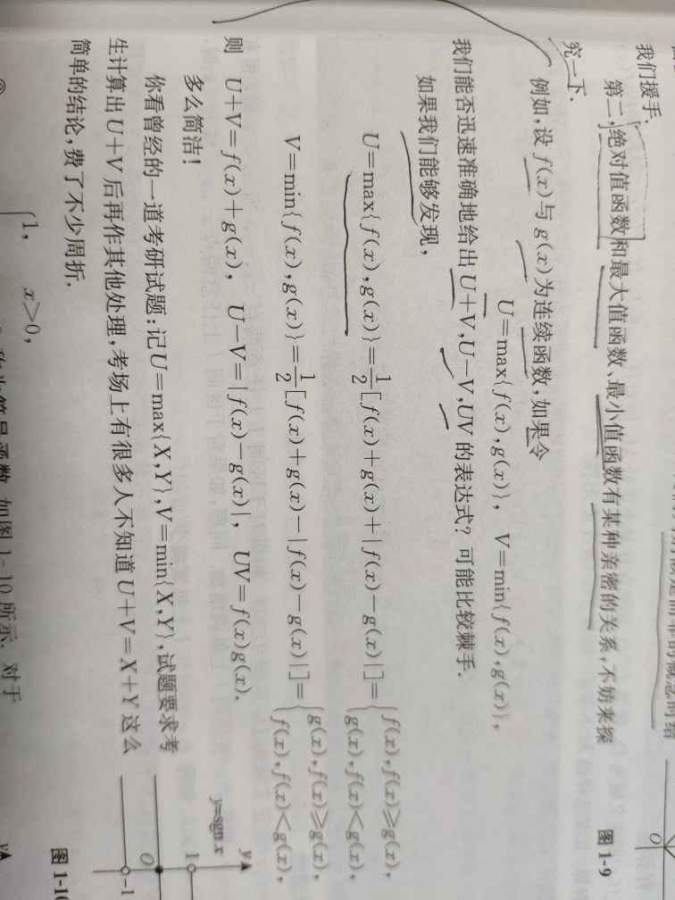 我们援手.
第二,绝对值函数和最大值函数、最小值函数有某种亲密的关系,不妨来探
究一下.
例如,设 f(x)与 g(x)为连续函数,如果令
U=max{f(x),g(x)}, V=min{f(x),g(x)},
我们能否迅速准确地给出 U+V,U-V,UV 的表达式? 可能比较棘手.
如果我们能够发现,
U=max{f(x),g(x)}=1/2[f(x)+g(x)+|f(x)-g(x)|]={f(x),f(x)≥g(x),
g(x),f(x)<g(x),
V=min{f(x),g(x)}=1/2[f(x)+g(x)-|f(x)-g(x)|]={g(x),f(x)≥g(x),
f(x),f(x)<g(x),
则 U+V=f(x)+g(x), U-V=|f(x)-g(x)|, UV=f(x)g(x).
多么简洁!
你看曾经的一道考研试题:记U=max{X,Y},V=min{X,Y},试题要求考
生计算出 U+V 后再作其他处理,考场上有很多人不知道 U+V=X+Y 这么
简单的结论,费了不少周折.
1, x>0,
如图 1-10 所示. 对于
O
图 1-9
y
y=sgn x
1
O
-1
图 1-10
y